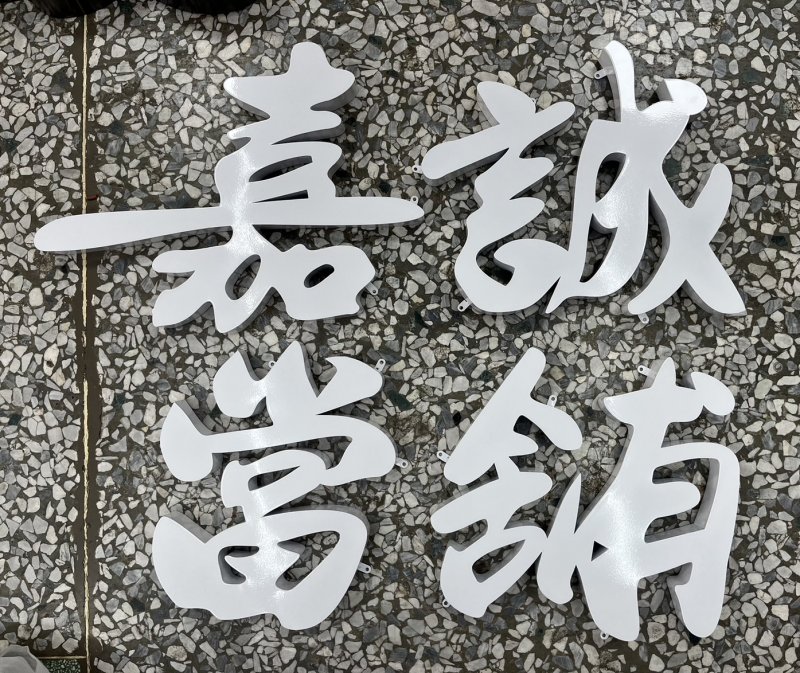 嘉誠
當舖